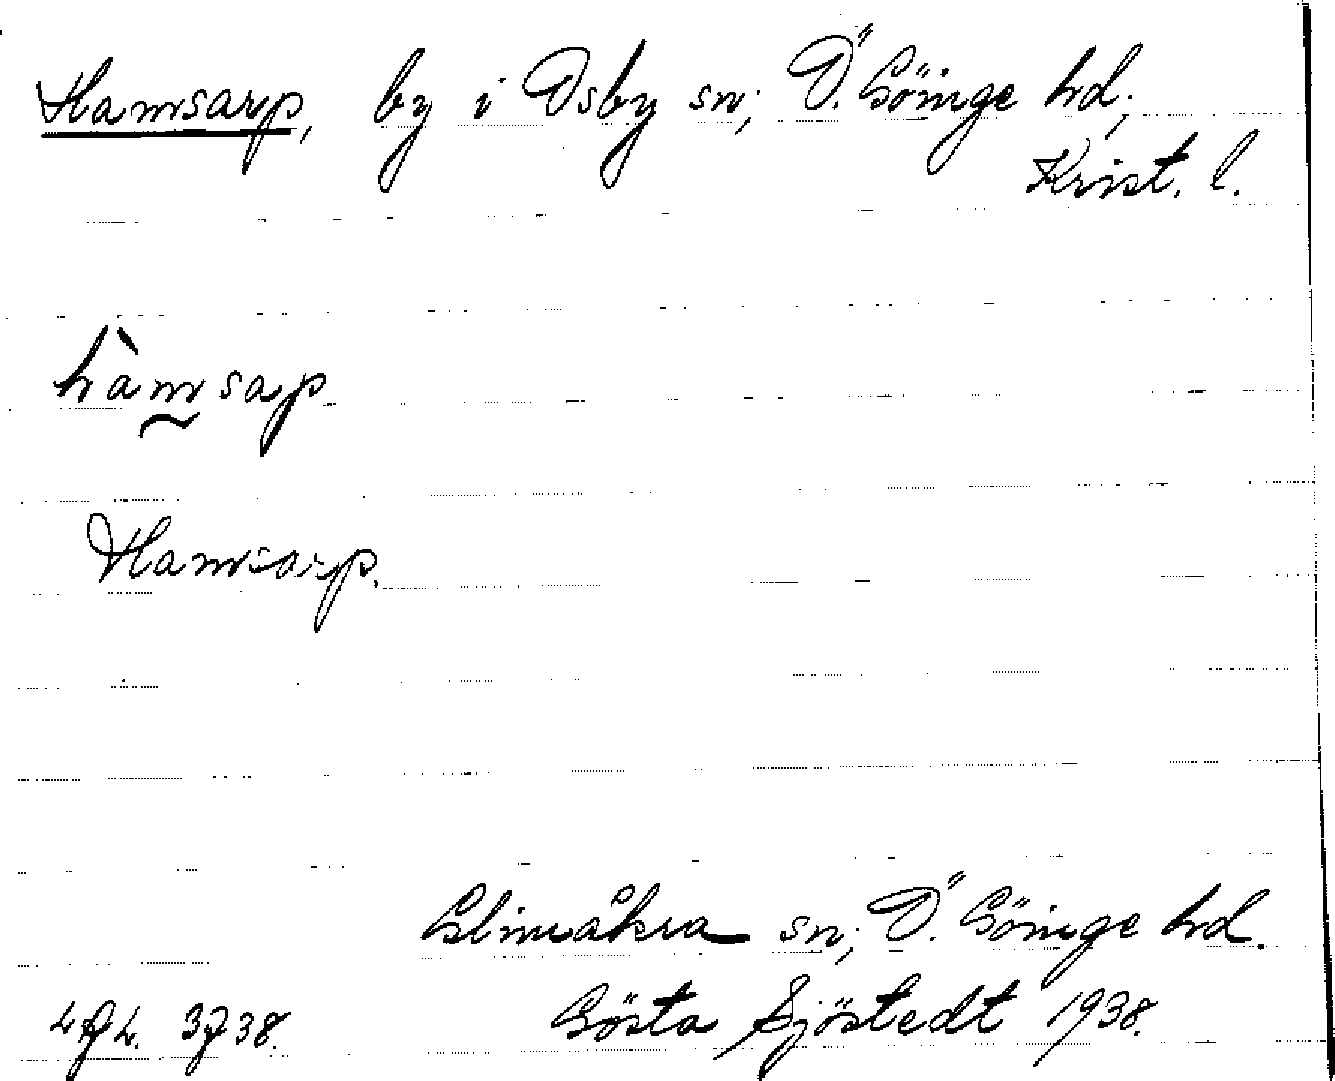 Hamsarp, by i Osby sn; Ö. Göinge hd;
Krist. l.
hàmsap
Hamsarp.
Glimåkra sn; Ö. Göinge hd.
Gösta Sjöstedt 1938.